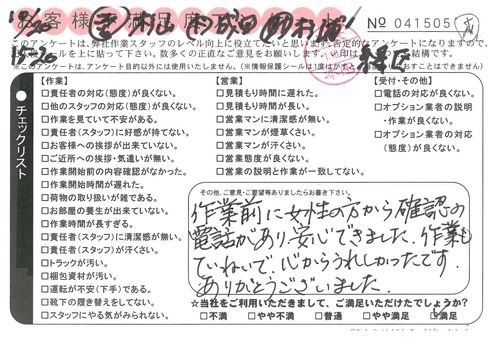 お客様満足度
№ 041505
このアンケートは、弊社作業スタッフのレベル向上に役立てたいと思います。否定的なアンケートになりますので、
※このアンケートは、アンケート目的以外には使用いたしません。(※情報保護シールは1度はがすと
チェックリスト
【作業】
□責任者の対応(態度)が良くない。
□他のスタッフの対応(態度)が良くない。
□作業を見ていて不安がある。
□責任者(スタッフ)に好感が持てない。
□お客様への挨拶が出来ていない。
□ご近所への挨拶・気遣いが無い。
□作業開始前の内容確認がなかった。
□作業開始時間が遅れた。
□荷物の取り扱いが雑である。
□お部屋の養生が出来ていない。
□作業時間が長すぎる。
□責任者(スタッフ)に清潔感が無い。
□責任者(スタッフ)が汗くさい。
□トラックが汚い。
□梱包資材が汚い。
□運転が不安(下手)である。
□靴下の履き替えをしてない。
□スタッフにやる気がみられない。
【営業】
□見積もり時間に遅れた。
□見積もり時間が長い。
□営業マンに清潔感が無い。
□営業マンが煙草くさい。
□営業マンが汗くさい。
□営業態度が良くない。
□営業の説明と作業が一致してない。
【受付・その他】
□電話の対応が良くない。
□オプション業者の説明
・作業が良くない。
□オプション業者の対応
(態度)が良くない。
その他、ご意見・ご要望等ありましたらお書き下さい。
作業前に女性の方から確認の
電話があり、安心できました。作業も
ていねいで、心からうれしかったです。
ありがとうございました。
☆当社をご利用いただきまして、ご満足いただけたでしょうか?
□不満 □やや不満 □普通 □やや満足 □満足